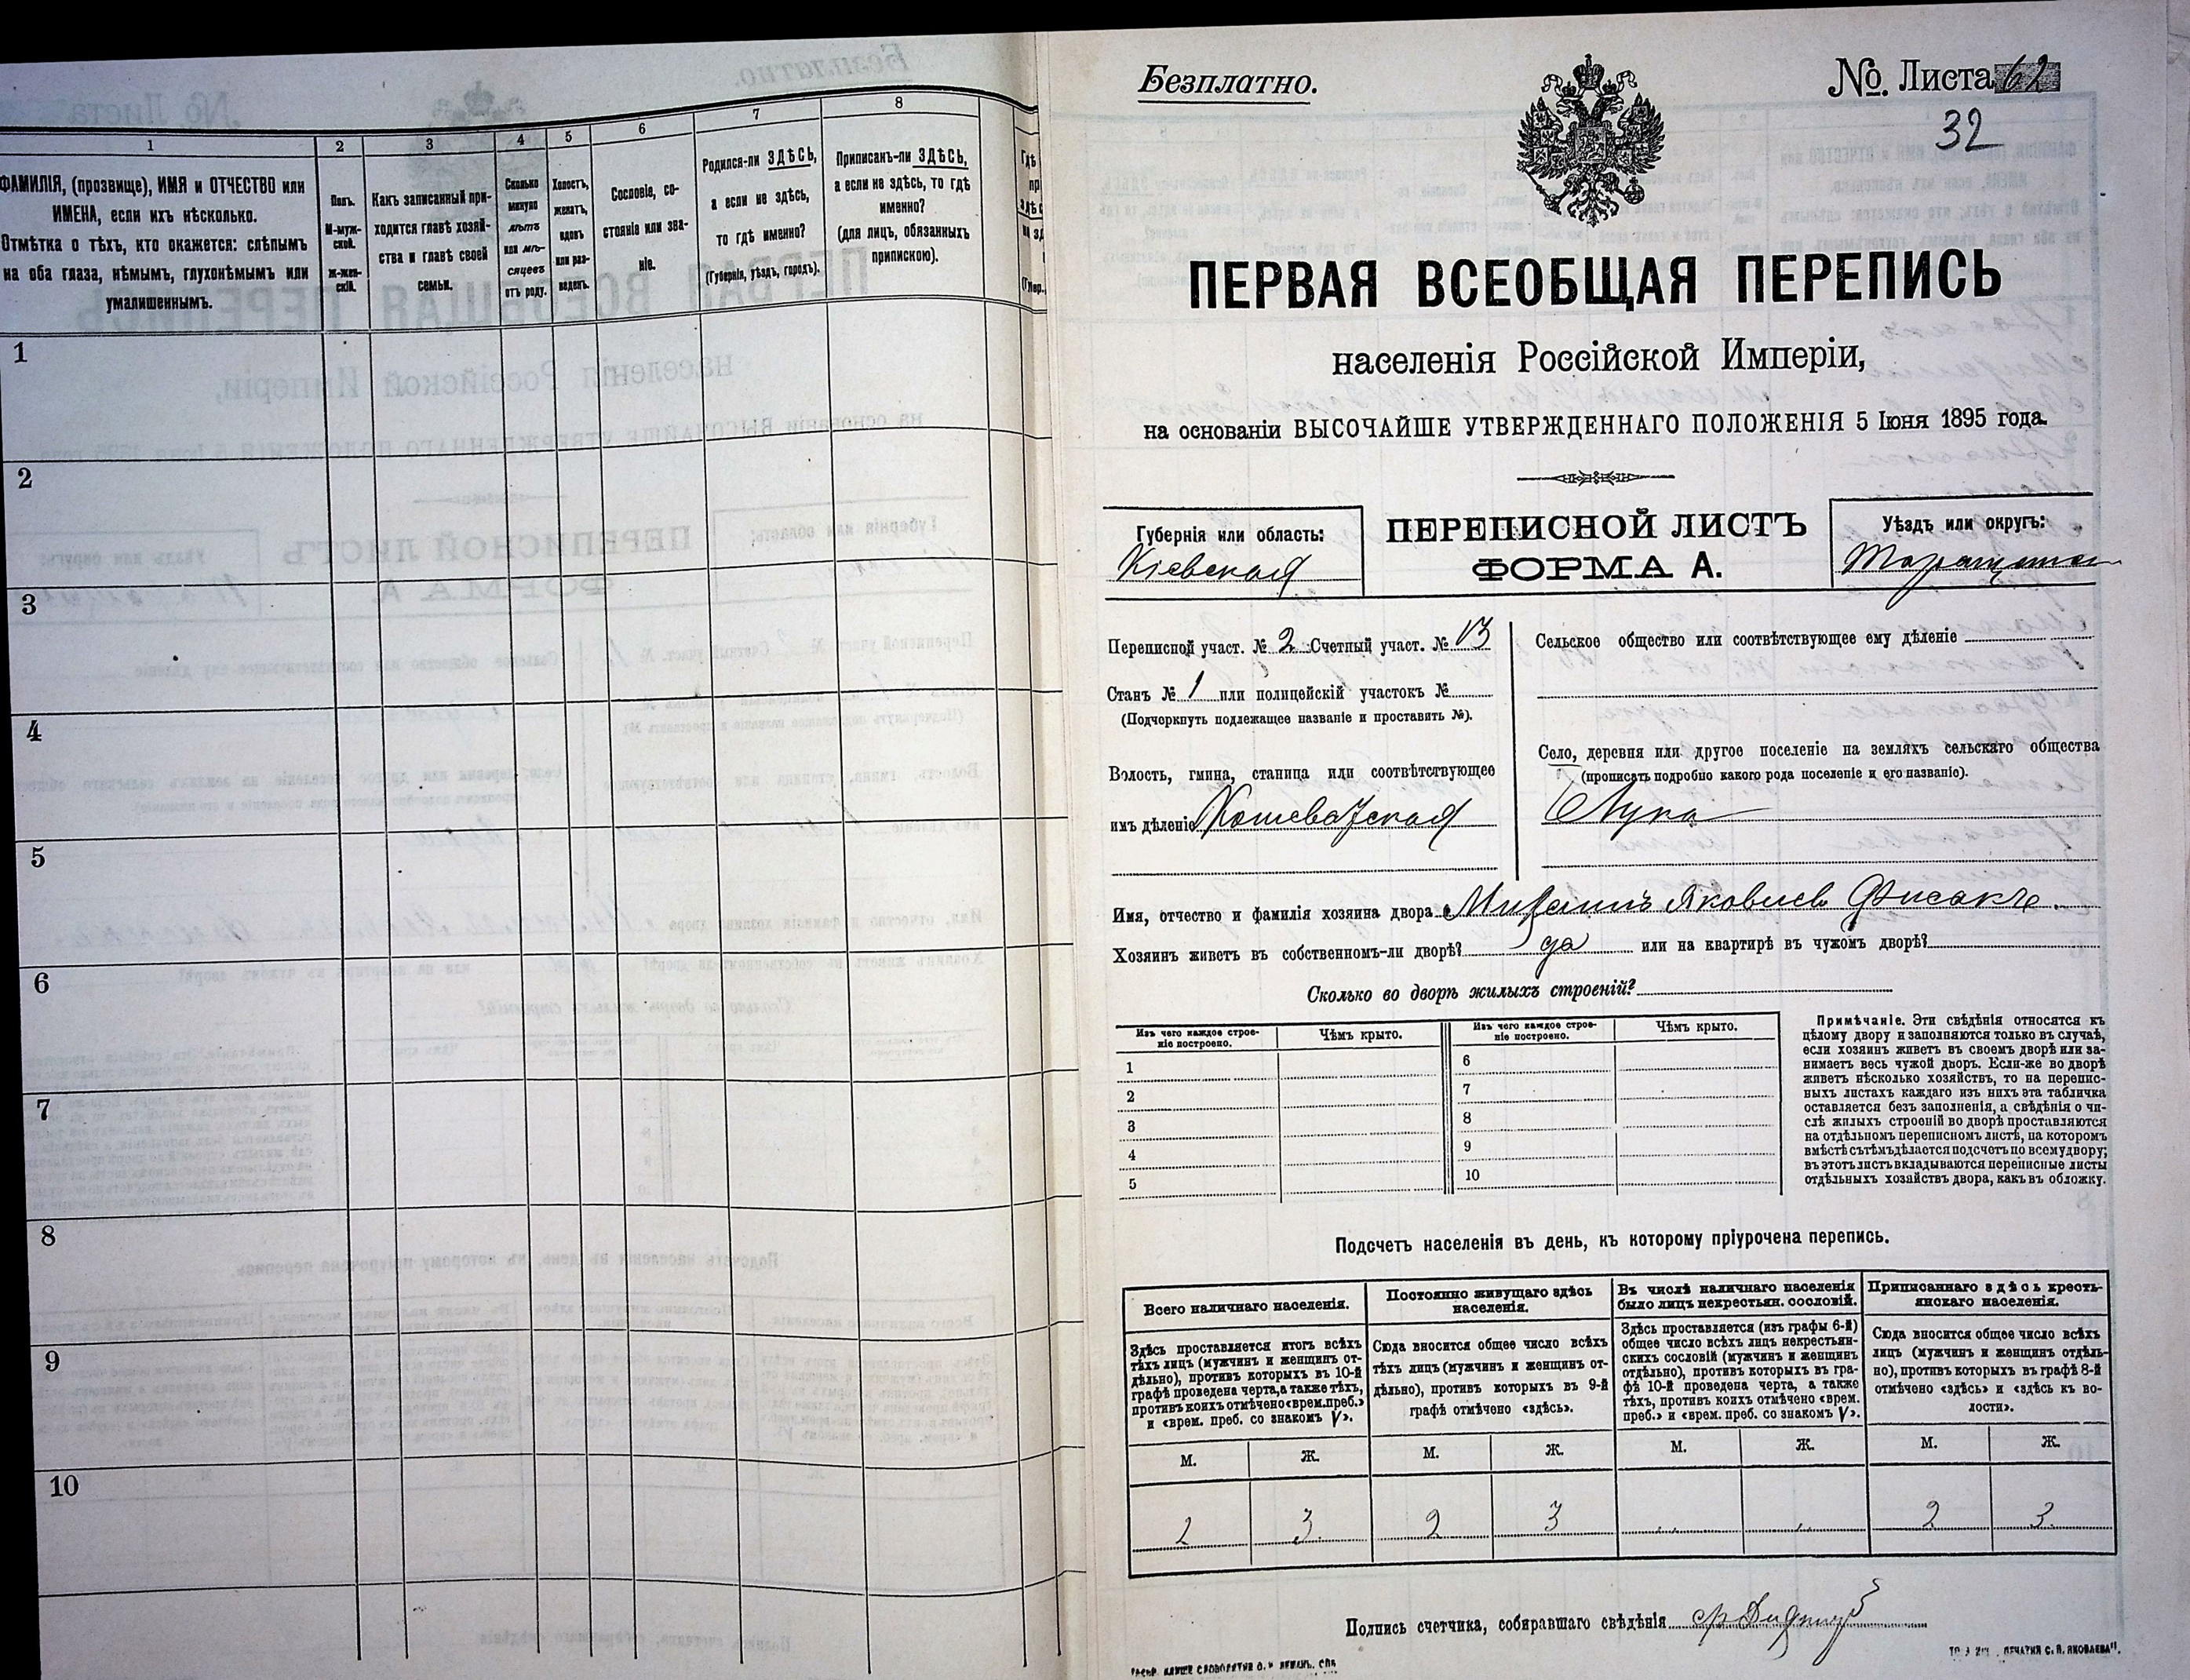 1
2
3
4
5
6
7
8
ФАМИЛІЯ, (прозвище), ИМЯ и ОТЧЕСТВО или
ИМЕНА, если ихъ нѣсколько.
Отмѣтка о тѣхъ, кто окажется: слѣпымъ
на оба глаза, нѣмымъ, глухонѣмымъ или
умалишеннымъ.
Полъ.
М-муж-
ской.
Ж-жен-
скій.
Какъ записанный при-
ходится главѣ хозяй-
ства и главѣ своей
семьи.
Сколько
минуло
лѣтъ
или мѣ-
сяцевъ
отъ роду.
Холостъ,
женатъ,
вдовъ
или раз-
веденъ.
Сословіе, со-
стояніе или зва-
ніе.
Родился-ли ЗДѢСЬ,
а если не здѣсь,
то гдѣ именно?
(Губернія, уѣздъ, городъ).
Приписанъ-ли ЗДѢСЬ,
а если не здѣсь, то гдѣ
именно?
(для лицъ, обязанныхъ
припискою).
1
2
3
4
5
6
7
8
9
10
Безплатно.
№. Листа 62
32
ПЕРВАЯ ВСЕОБЩАЯ ПЕРЕПИСЬ
населенія Россійской Имперіи,
на основаніи ВЫСОЧАЙШЕ УТВЕРЖДЕННАГО ПОЛОЖЕНІЯ 5 Іюня 1895 года.
Губернія или область:
Кіевская
ПЕРЕПИСНОЙ ЛИСТЪ
ФОРМА А.
Уѣздъ или округъ:
Переписной участ. № 2 Счетный участ. № 13
Станъ № 1 или полицейскій участокъ №
(Подчеркнуть подлежащее названіе и проставить №).
Волость, гмина, станица или соотвѣтствующее
имъ дѣленіе Кошеватская
Сельское общество или соотвѣтствующее ему дѣленіе
Село, деревня или другое поселеніе на земляхъ сельскаго общества
(прописать подробно какого рода поселеніе и его названіе).
Лука
Имя, отчество и фамилія хозяина двора Михаилъ Яковлевъ Фисакъ.
Хозяинъ живетъ въ собственномъ-ли дворѣ? да или на квартирѣ въ чужомъ дворѣ?
Сколько во дворѣ жилыхъ строеній?
Изъ чего каждое строе-
ніе построено.
Чѣмъ крыто.
Изъ чего каждое строе-
ніе построено.
Чѣмъ крыто.
1
2
3
4
5
6
7
8
9
10
Примѣчаніе. Эти свѣдѣнія относятся къ
цѣлому двору и заполняются только въ случаѣ,
если хозяинъ живетъ въ своемъ дворѣ или за-
нимаетъ весь чужой дворъ. Если-же во дворѣ
живетъ нѣсколько хозяйствъ, то на перепис-
ныхъ листахъ каждаго изъ нихъ эта табличка
оставляется безъ заполненія, а свѣдѣнія о чи-
слѣ жилыхъ строеній во дворѣ проставляются
на отдѣльномъ переписномъ листѣ, на которомъ
вмѣстѣ съ тѣмъ дѣлается подсчетъ по всему двору;
въ этотъ листъ вкладываются переписные листы
отдѣльныхъ хозяйствъ двора, какъ въ обложку.
Подсчетъ населенія въ день, къ которому пріурочена перепись.
Всего наличнаго населенія.
Здѣсь проставляется итогъ всѣхъ
тѣхъ лицъ (мужчинъ и женщинъ от-
дѣльно), противъ которыхъ въ 10-й
графѣ проведена черта, а также тѣхъ,
противъ коихъ отмѣчено «врем. преб.»
и «врем. преб. со знакомъ V».
Постоянно живущаго здѣсь
населенія.
Сюда вносится общее число всѣхъ
тѣхъ лицъ (мужчинъ и женщинъ от-
дѣльно), противъ которыхъ въ 9-й
графѣ отмѣчено «здѣсь».
Въ числѣ наличнаго населенія
было лицъ некрестьян. сословій.
Здѣсь проставляется (изъ графы 6-й)
общее число всѣхъ лицъ некрестьян-
скихъ сословій (мужчинъ и женщинъ
отдѣльно), противъ которыхъ въ гра-
фѣ 10-й проведена черта, а также
тѣхъ, противъ коихъ отмѣчено «врем.
преб.» и «врем. преб. со знакомъ V».
Приписаннаго здѣсь кресть-
янскаго населенія.
Сюда вносится общее число всѣхъ
лицъ (мужчинъ и женщинъ отдѣль-
но), противъ которыхъ въ графѣ 8-й
отмѣчено «здѣсь» и «здѣсь къ во-
лости».
М. Ж. М. Ж. М. Ж. М. Ж.
2 3 2 3 2 3
Подпись счетчика, собиравшаго свѣдѣнія